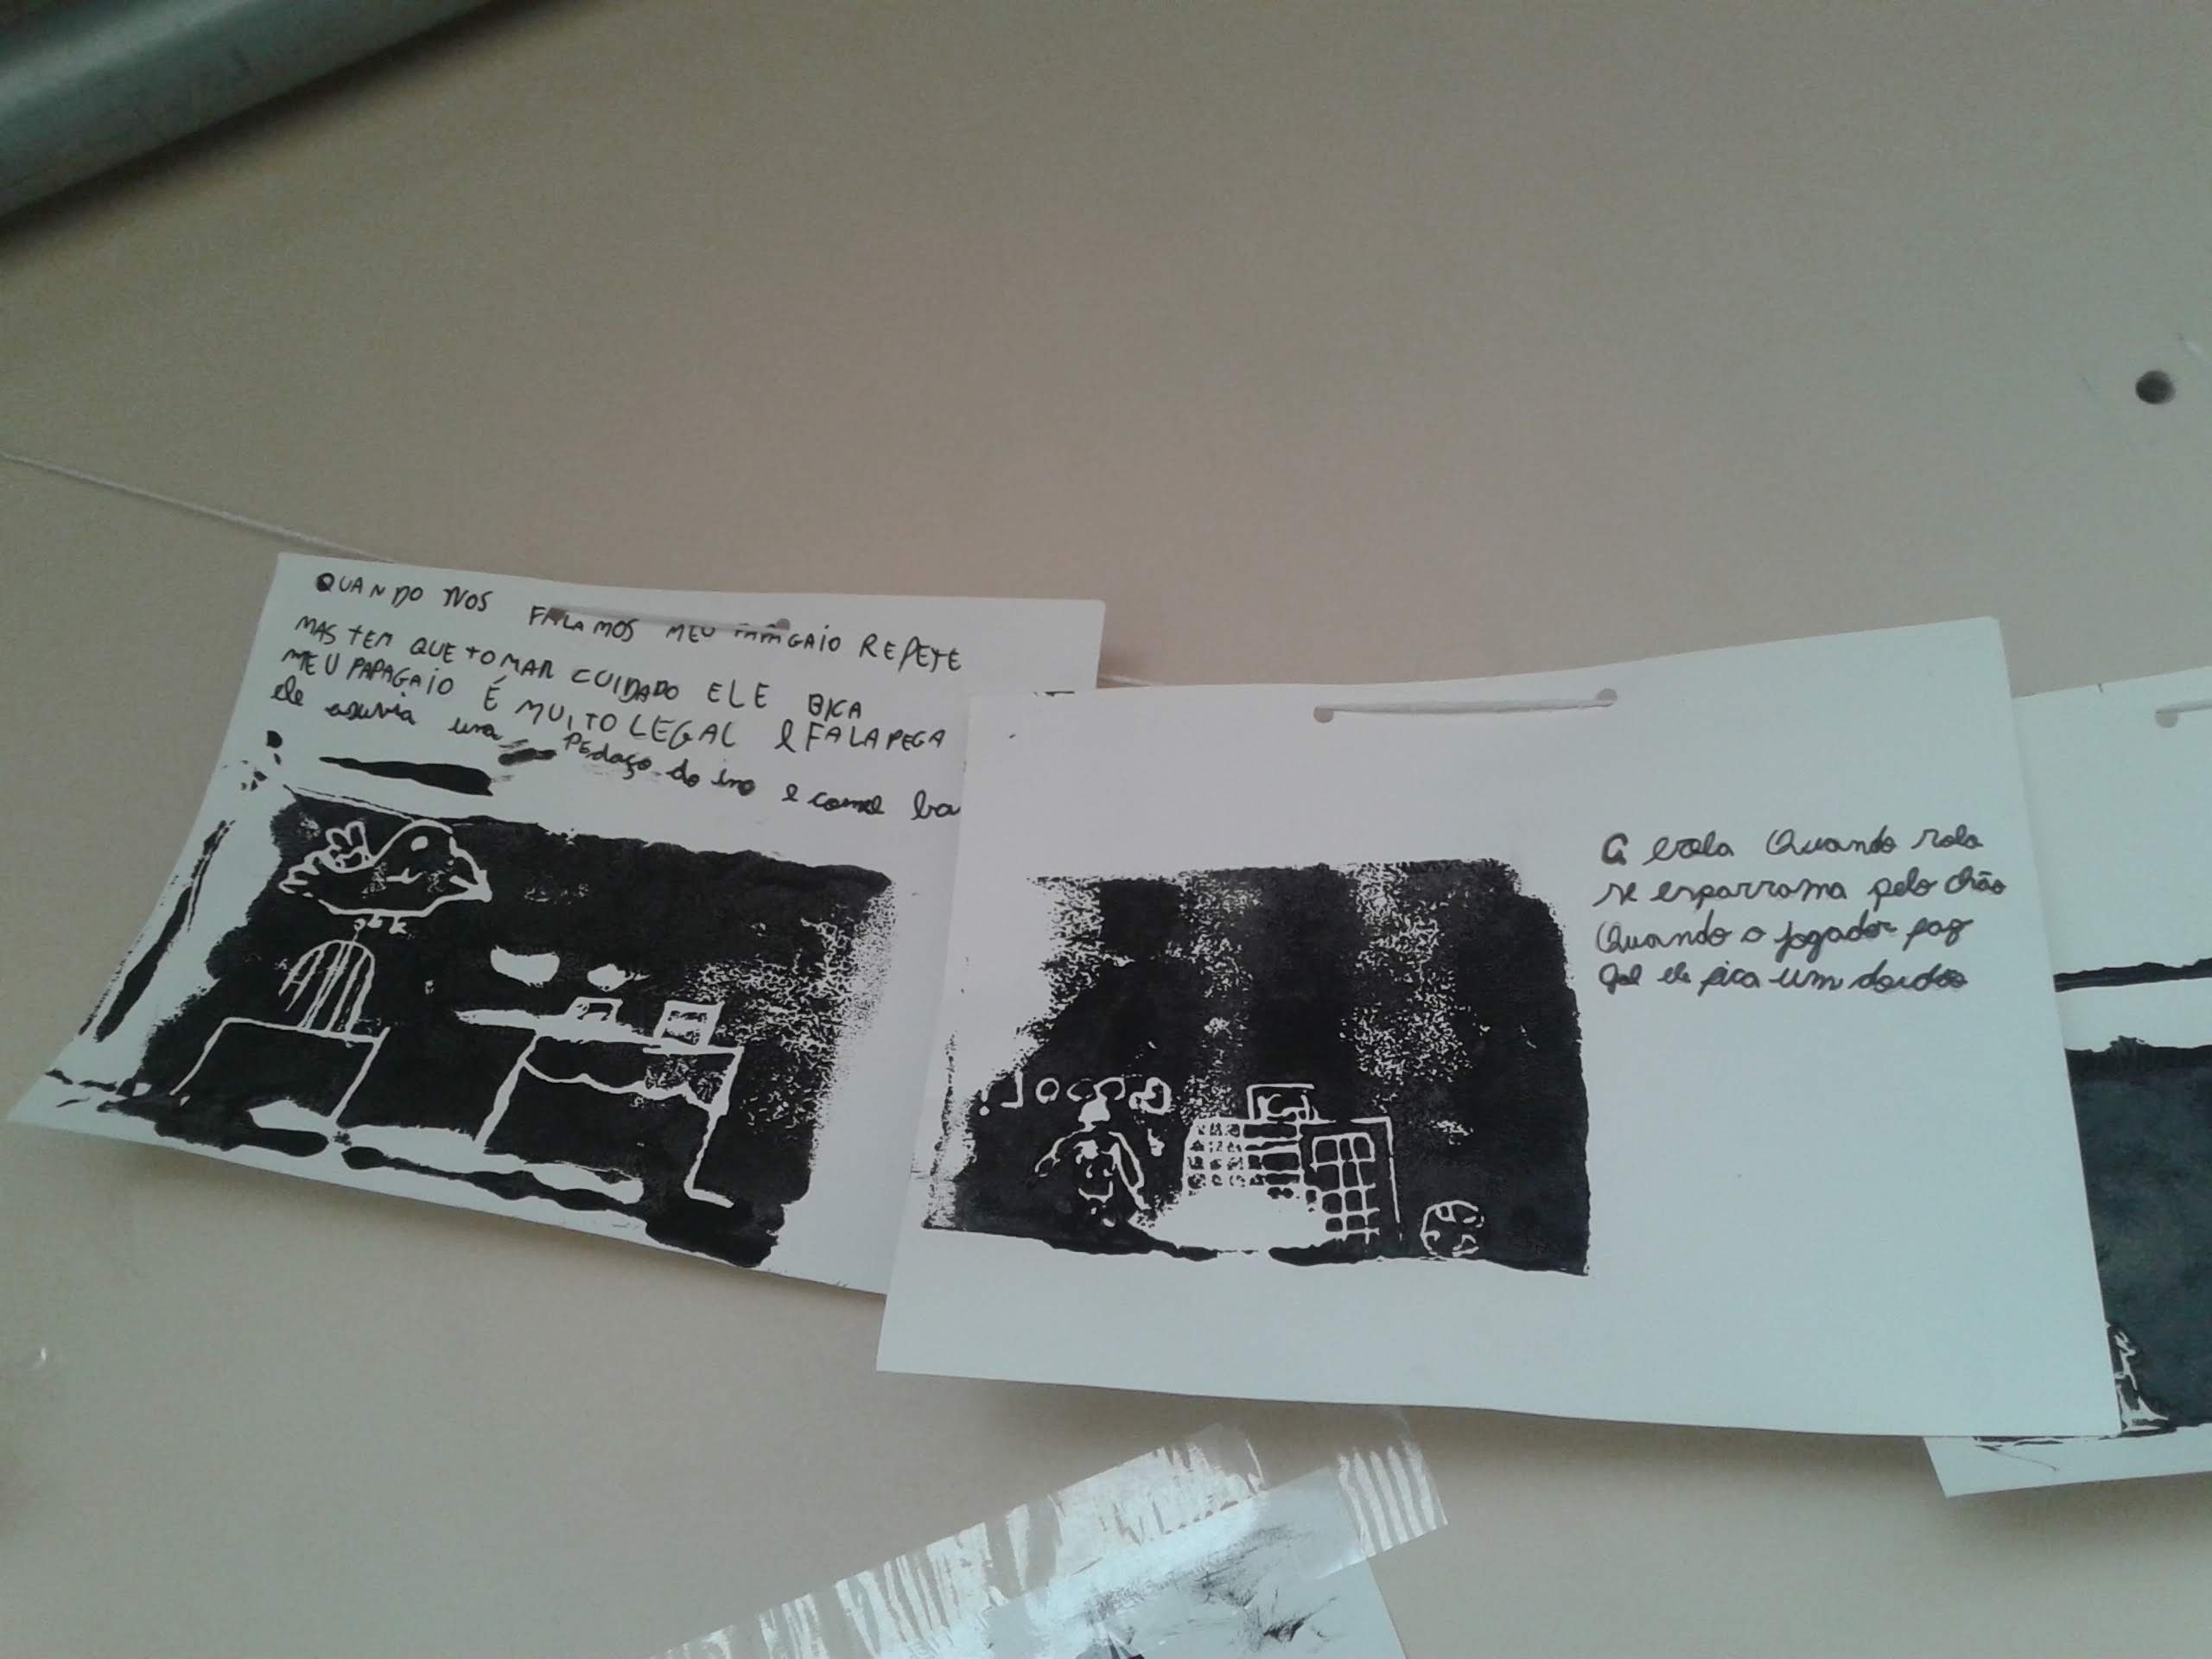 QUANDO NOS FALAMOS MEU PAPAGAIO REPETE
MAS TEM QUE TOMAR CUIDADO ELE BICA
MEU PAPAGAIO É MUITO LEGAL e FALA PEGA
ele asuvia uma Pedaço do ino e come ba
A bola Quando rola
se esparrama pelo chão
Quando o jogador faz
gol ele fica um doidão